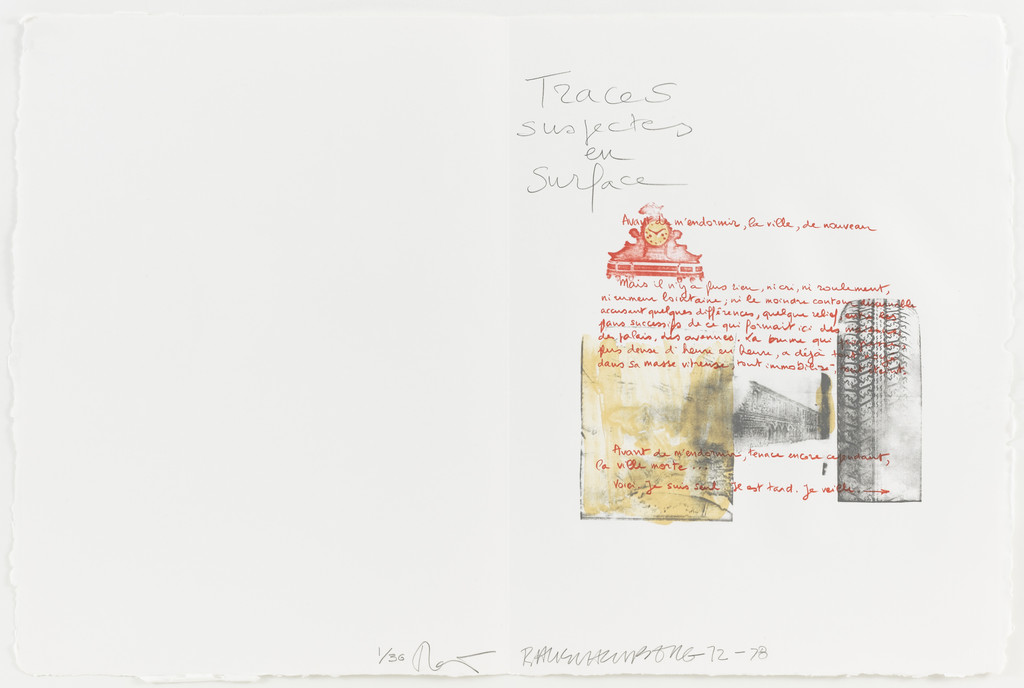 Traces
suspectes
en
Surface
Avant de m'endormir, la ville, de nouveau
Mais il n'y a plus rien, ni cri, ni roulement,
ni rumeur lointaine, ni le moindre contour discernable
accusant quelques différences, quelque relief, entre les
plans successifs de ce qui formait ici des maisons,
des palais, des avenues. La brume qui
plus dense d'heure en heure, a déjà
dans sa masse vitreuse, tout immobilisé, tout
Avant de m'endormir, tenace encore cependant,
la ville morte ...
Voici. Je suis seul. Il est tard. Je veille.
1/36
RAUSCHENBERG 72-78